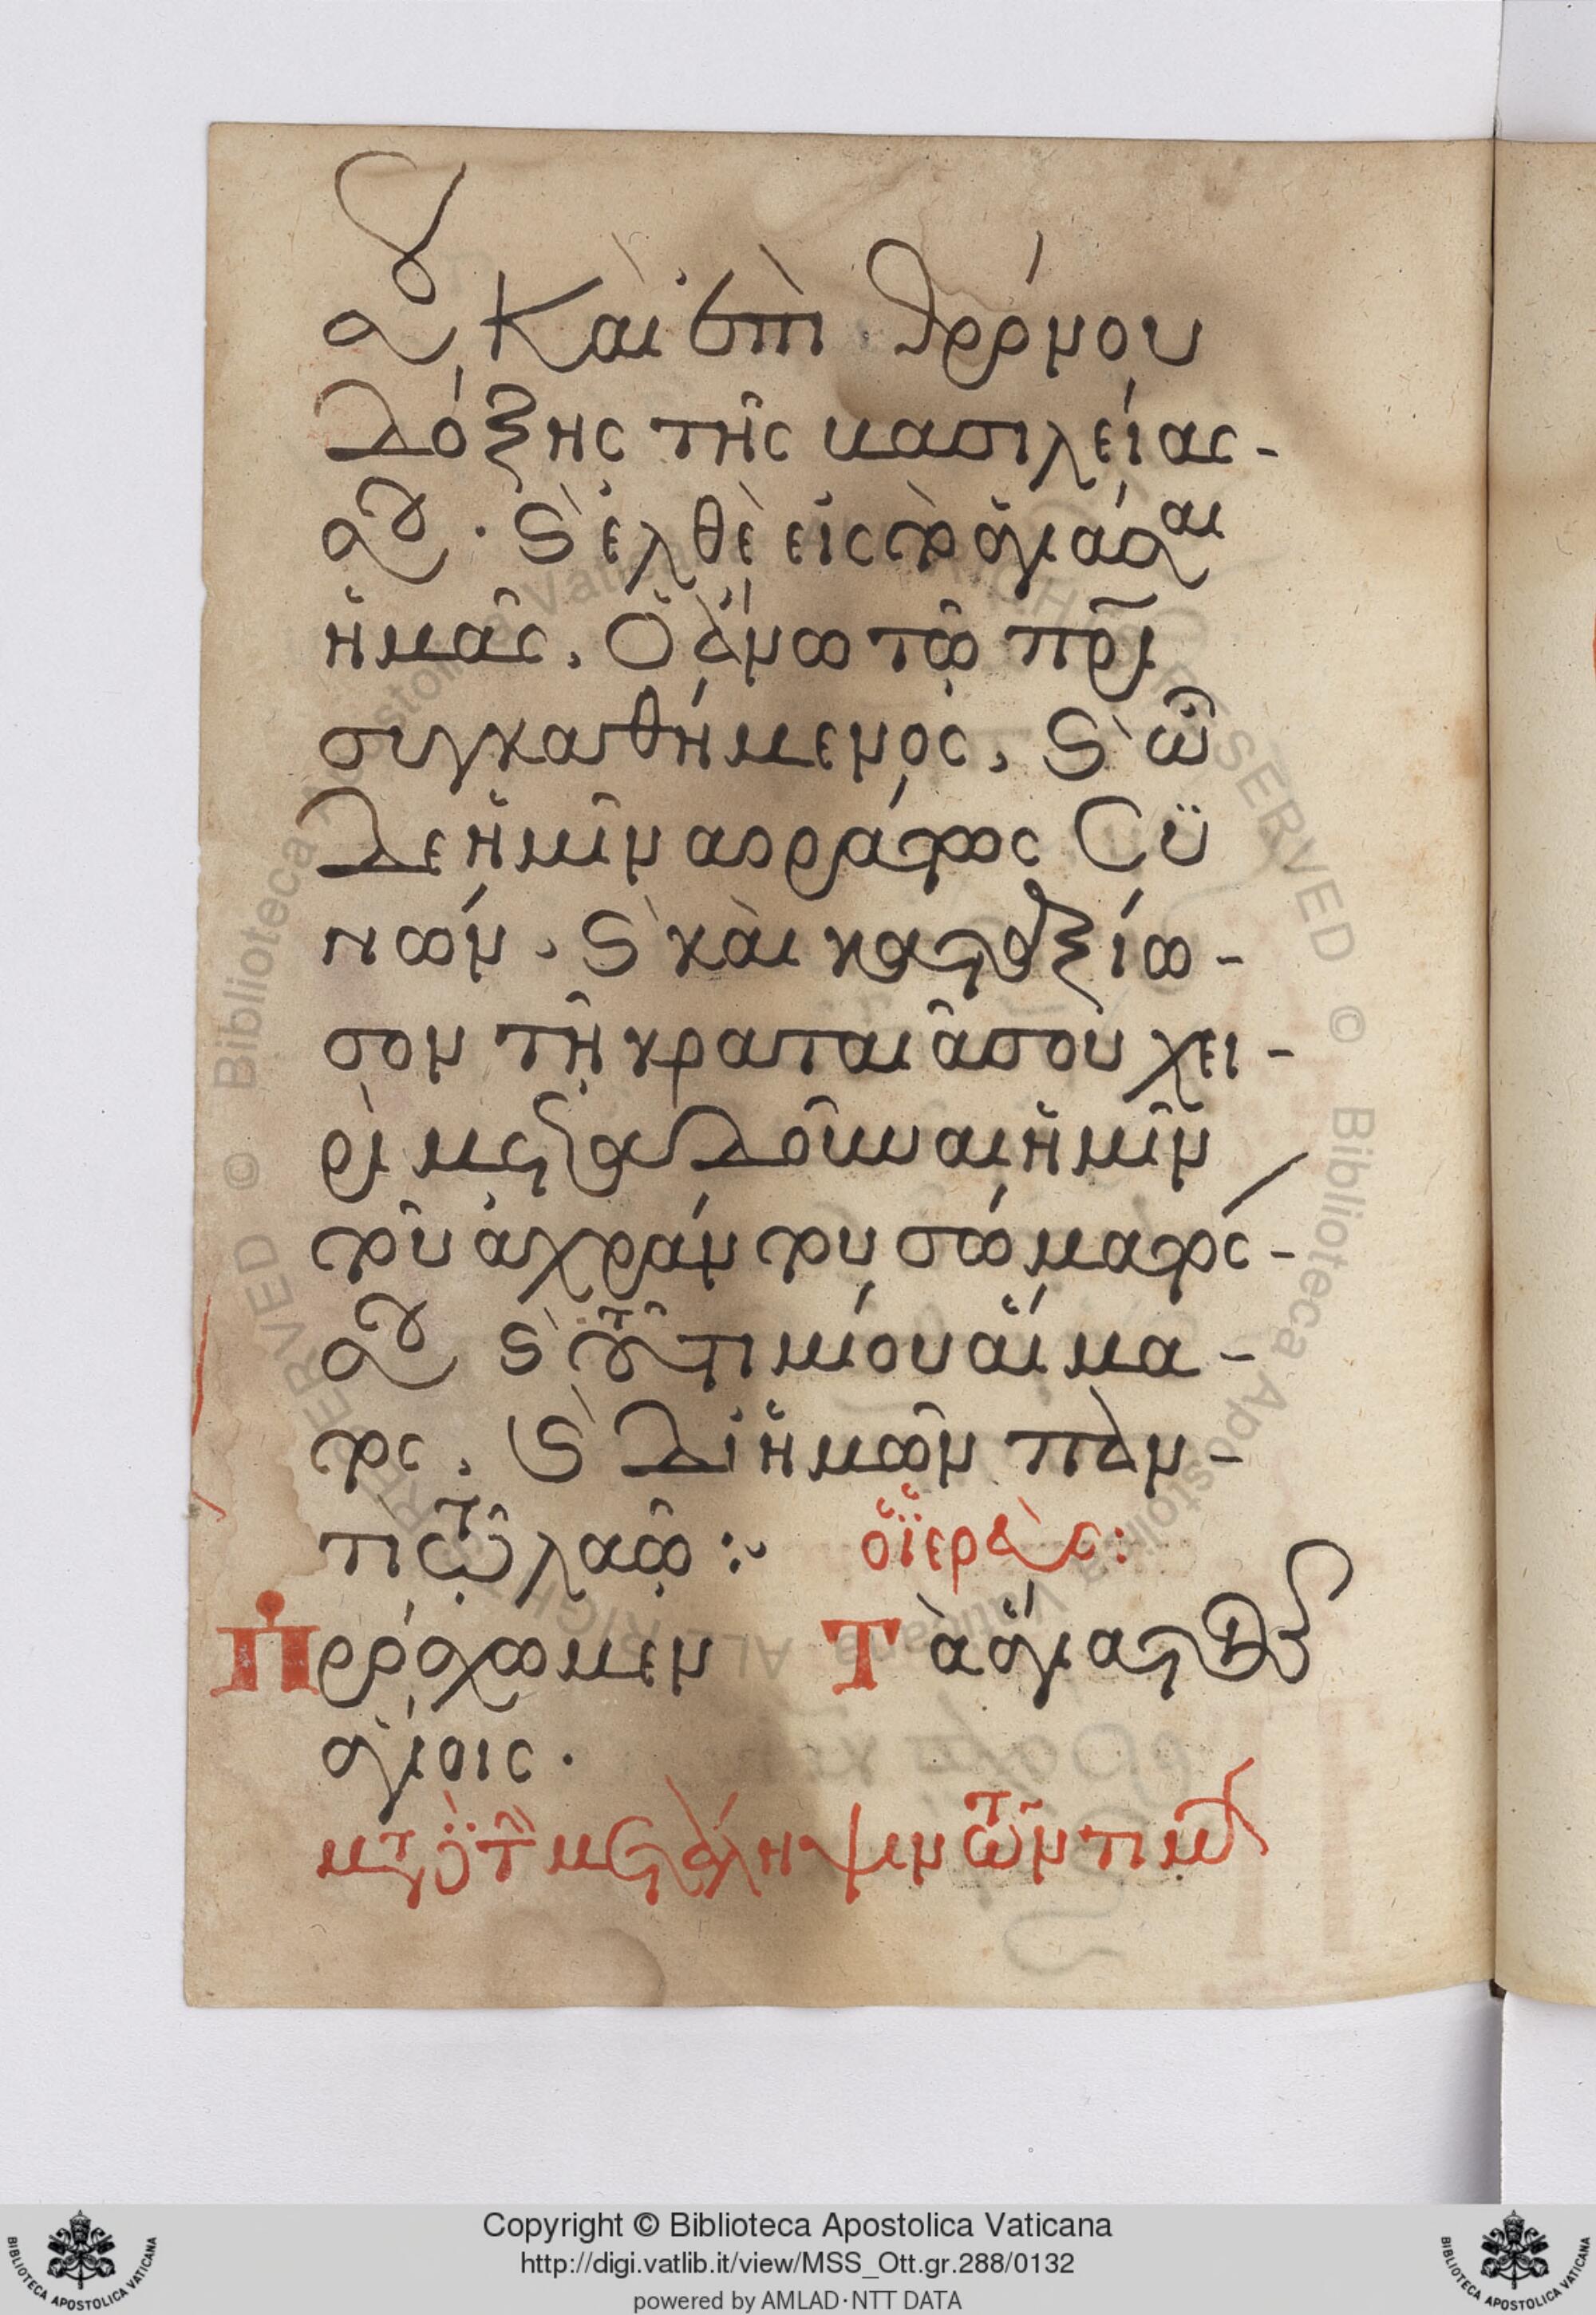 σου, Καὶ ἐπὶ θρόνου
δόξης τῆς βασιλείας-
σου · καὶ ἐλθὲ εἰς τὸ ἁγιάσαι
ἡμᾶς, Ὁ ἄνω τῷ πρὶ
συγκαθήμενος, καὶ ὧ
δε ἡμῖν ἀοράτως Συ
νών, καὶ κατα ξίω-
σον τῆ κραταιᾶ σου χει-
ρὶ μεταδοῦναι ἡμῖν
τοῦ ἀχράντου σώματός-
σου καὶ τοῦ τιμίου αἵμα-
τος, καὶ δι ἡμῶν παν-
τὶ τῶ λαῶ :
ὁ ἱερεὺς:
Πρόσχωμεν Τὰ ἅγια τοῖς
ἁγίοις.
Copyright © Biblioteca Apostolica Vaticana
http://digi.vatlib.it/view/MSS_Ott.gr.288/0132
powered by AMLAD·NTT DATA
BIBLIOTECA APOSTOLICA VATICANA
BIBLIOTECA APOSTOLICA VATICANA